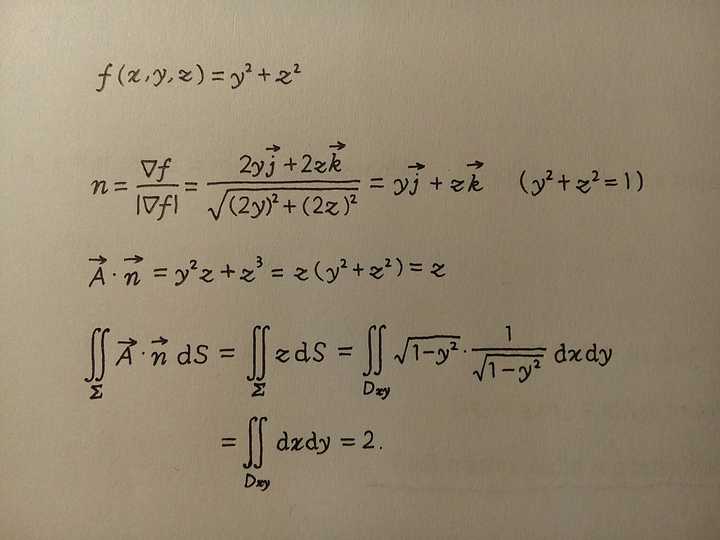 f(x,y,z)=y²+z²
n = ∇f/|∇f| = (2yj⃗ + 2zk⃗)/√((2y)²+(2z)²) = yj⃗ + zk⃗ (y²+z²=1)
A⃗·n⃗ = y²z+z³ = z(y²+z²) = z
∬_Σ A⃗·n⃗ dS = ∬_Σ zdS = ∬_Dxy √(1-y²)·1/√(1-y²) dxdy
= ∬_Dxy dxdy = 2.